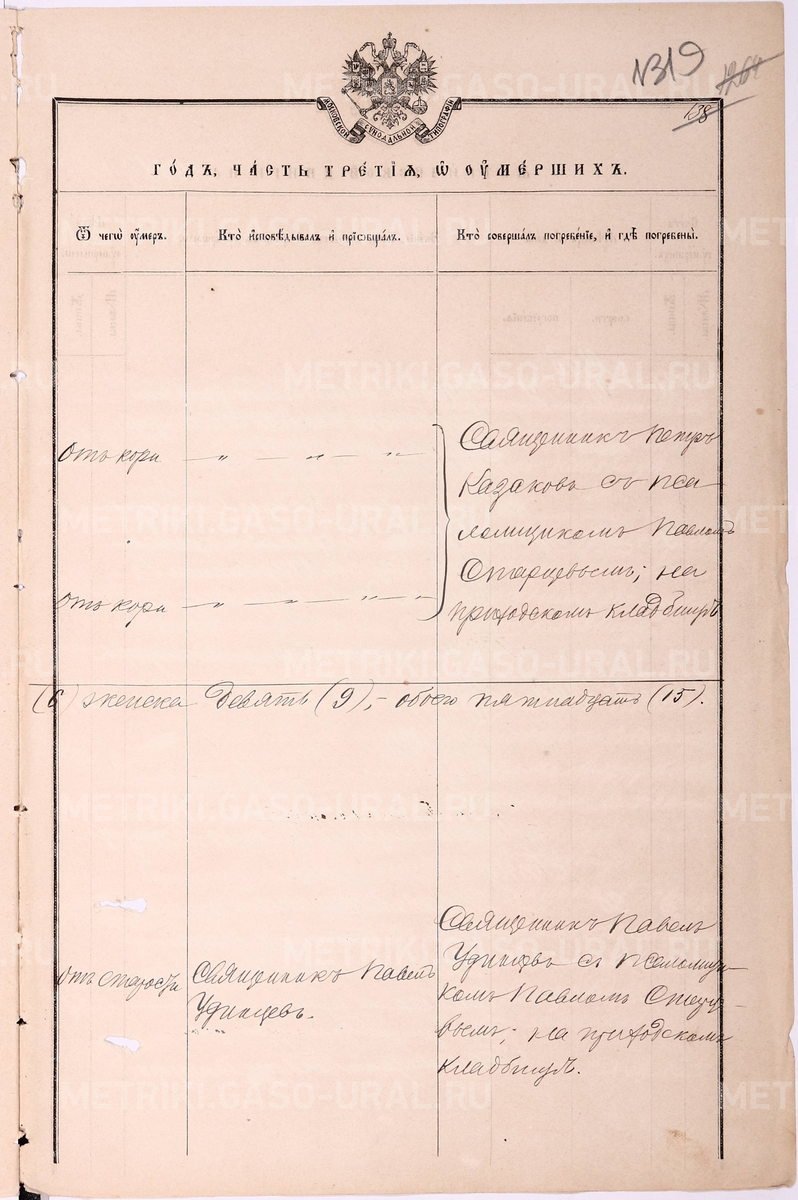 №319
1264
138
МОСКОВСКОЙ СѴНОДАЛЬНОЙ ТИПОГРАФІИ
ГО́ДЪ, ЧА́СТЬ ТРЕ́ТІѦ, Ѡ҆ ОУ҆МЕ́РШИХЪ.
Ѿ чегѡ̀ оу҆́меръ.
Кто̀ и҆сповѣ́дывалъ и҆ прїѡбща́лъ.
Кто̀ соверша́лъ погребе́нїе, и҆ гдѣ̀ погребены̀.
Отъ кори — „ — „ — „ —
Священникъ Петръ
Казаковъ съ пса-
ломщикомъ Павломъ
Старцевымъ; на
приходскомъ кладбищѣ
Отъ кори — „ — „ — „ —
(6) женска девять (9), – обоего пятнадцать (15).
Отъ старости
Священникъ Павелъ
Удинцевъ.
Священникъ Павелъ
Удинцевъ съ псаломщи-
комъ Павломъ Старце-
вымъ; на приходскомъ
кладбищѣ.
METRIKI.GASO-URAL.RU